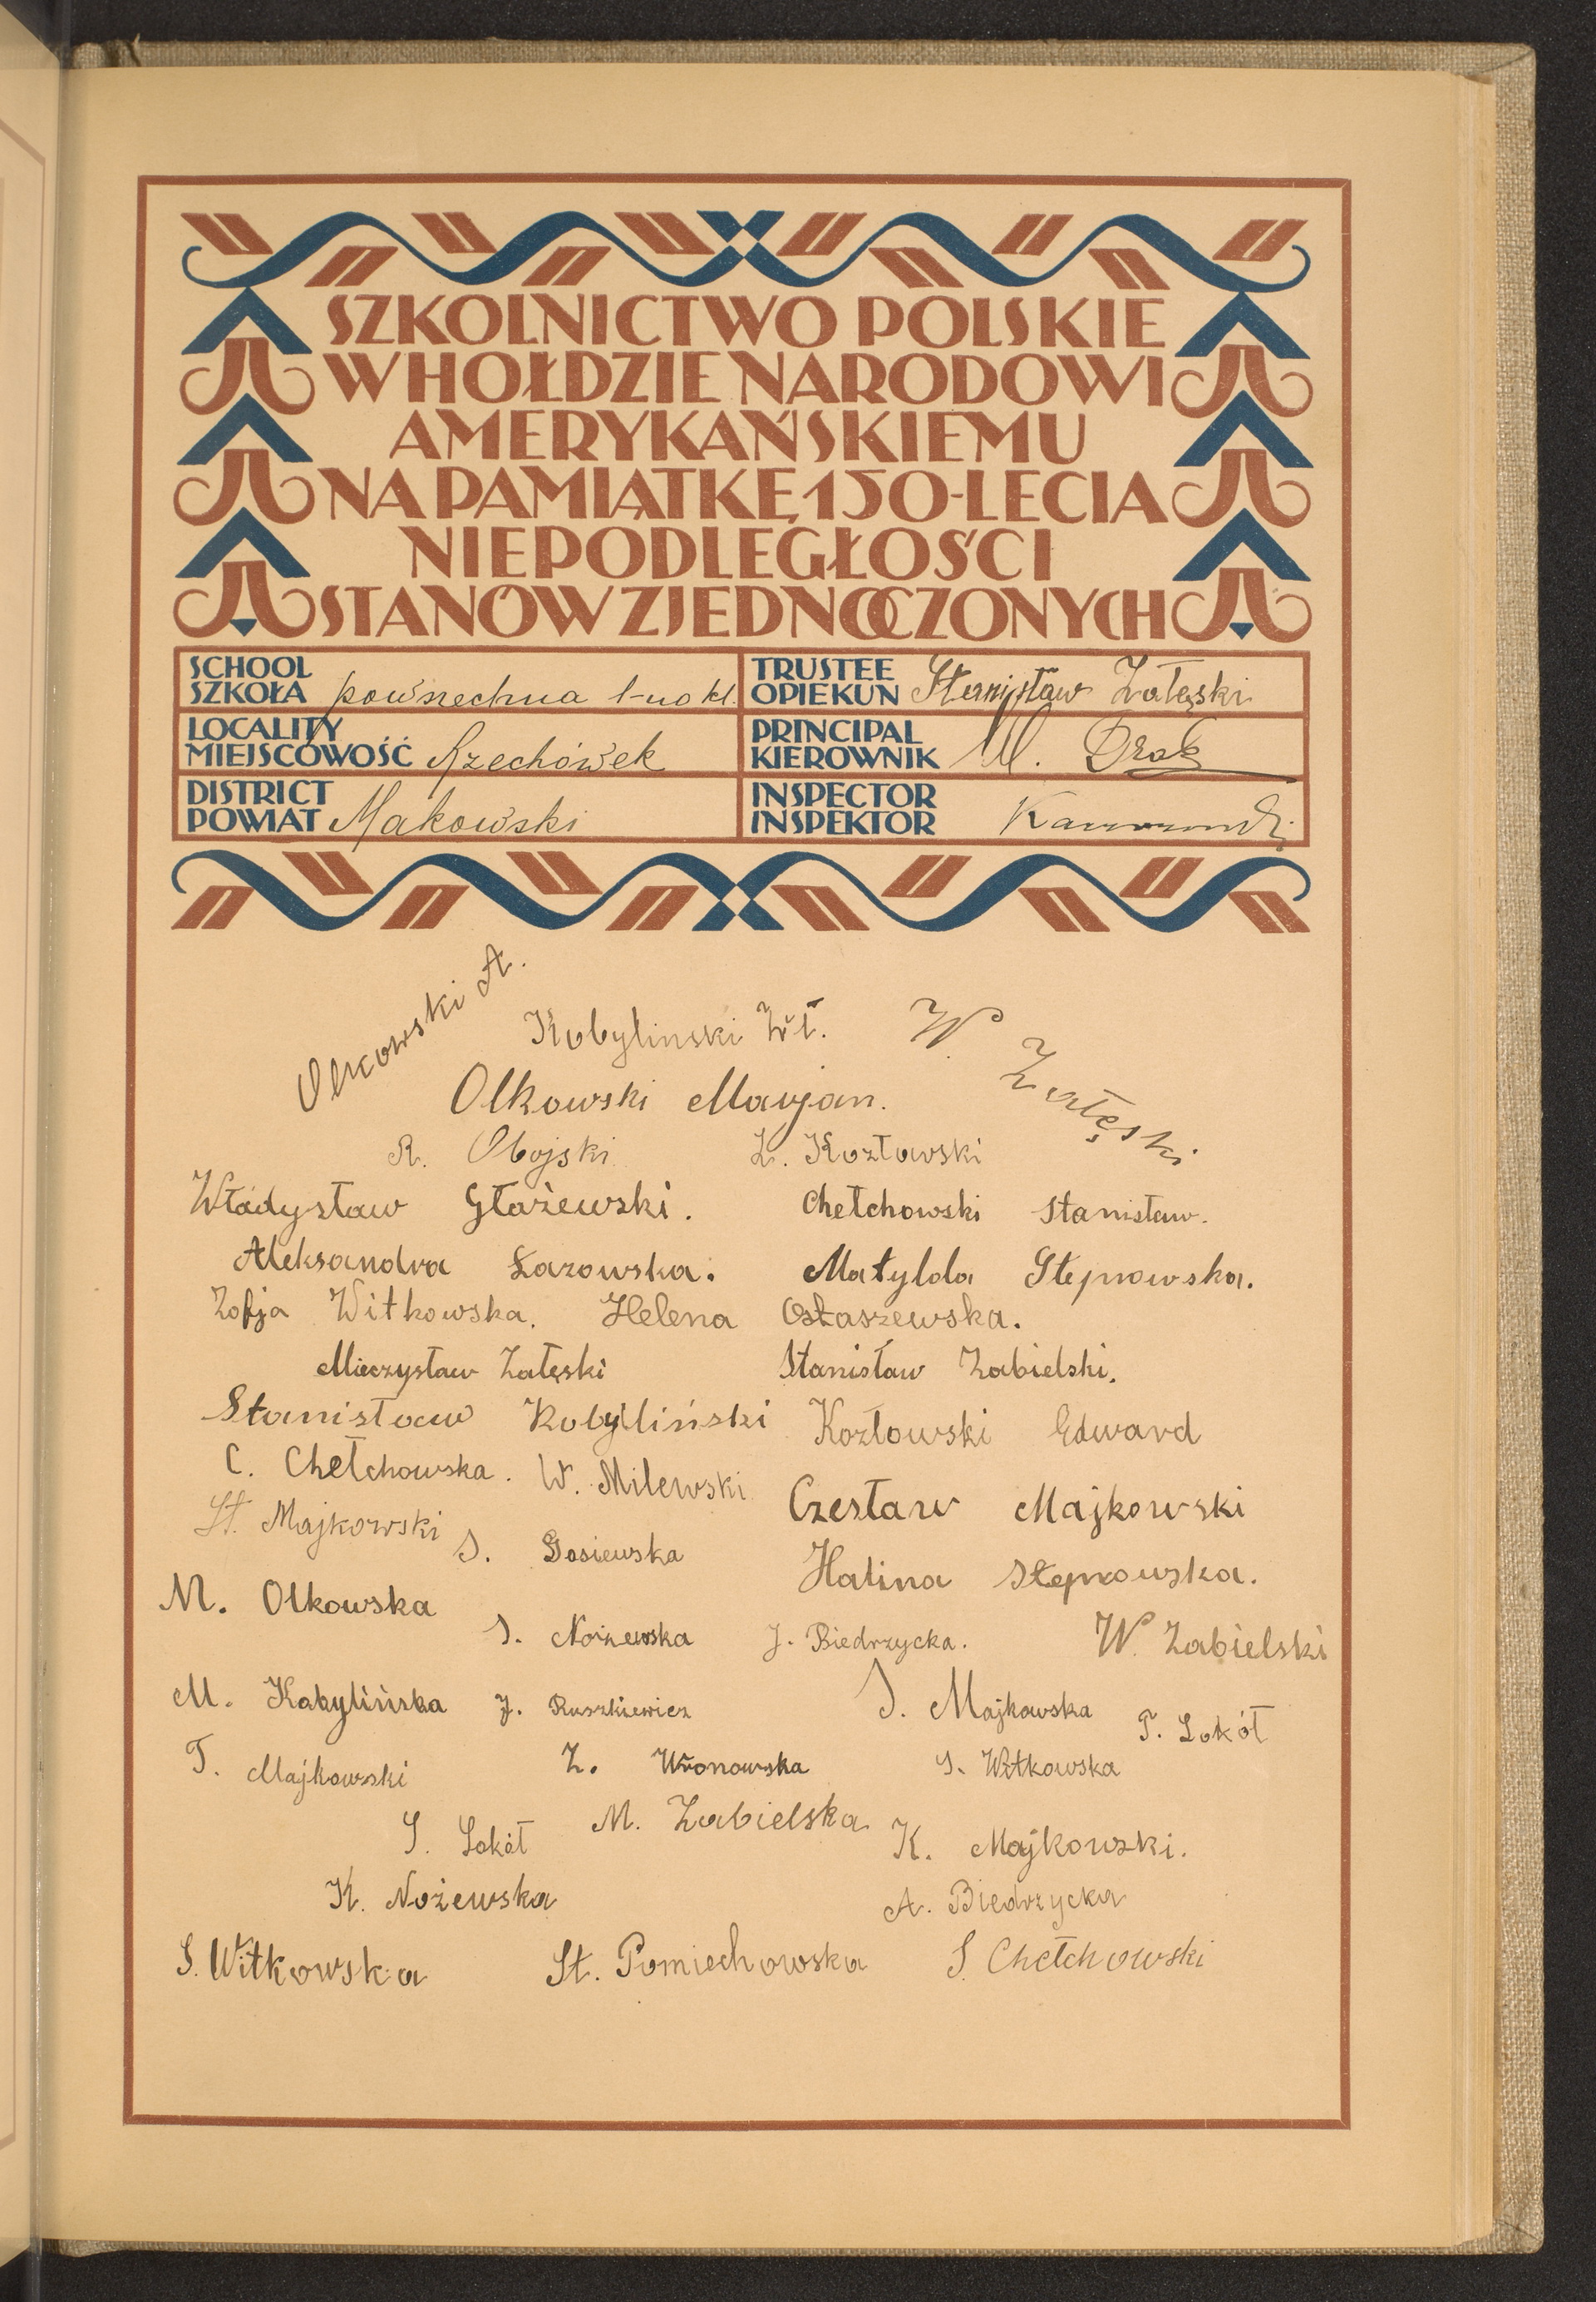 SZKOLNICTWO POLSKIE
W HOŁDZIE NARODOWI
AMERYKAŃSKIEMU
NA PAMIĄTKĘ 150-LECIA
NIEPODLEGŁOŚCI
STANÓW ZJEDNOCZONYCH
SCHOOL
SZKOŁA powszechna 1-no kl.
TRUSTEE
OPIEKUN Stanisław Załęski
LOCALITY
MIEJSCOWOŚĆ Rzechówek
PRINCIPAL
KIEROWNIK M. Drak
DISTRICT
POWIAT Makowski
INSPECTOR
INSPEKTOR
Olkowski A.
Kobylinski Wł. W. Załęski
Olkowski Marjan.
R. Obojski Z. Kozłowski
Władysław Głażewski. Chełchowski Stanisław.
Aleksandra Łazowska. Matylda Stępnowska.
Zofja Witkowska. Helena Ostaszewska.
Mieczysław Załęski Stanisław Zabielski.
Stanisław Kobyliński Kozłowski Edward
C. Chełchowska. W. Milewski
St. Majkowski Czesław Majkowski
S. Gosiewska
M. Olkowska Halina Stępnowska.
S. Nożewska J. Biedrzycka. W. Zabielski
M. Kobylińska J. Ruszkiewicz S. Majkowska T. Sokół
T. Majkowski Z. Wronowska S. Witkowska
S. Sokół M. Zabielska K. Majkowski.
K. Nożewska A. Biedrzycka
S. Witkowska St. Pomiechowska S. Chełchowski